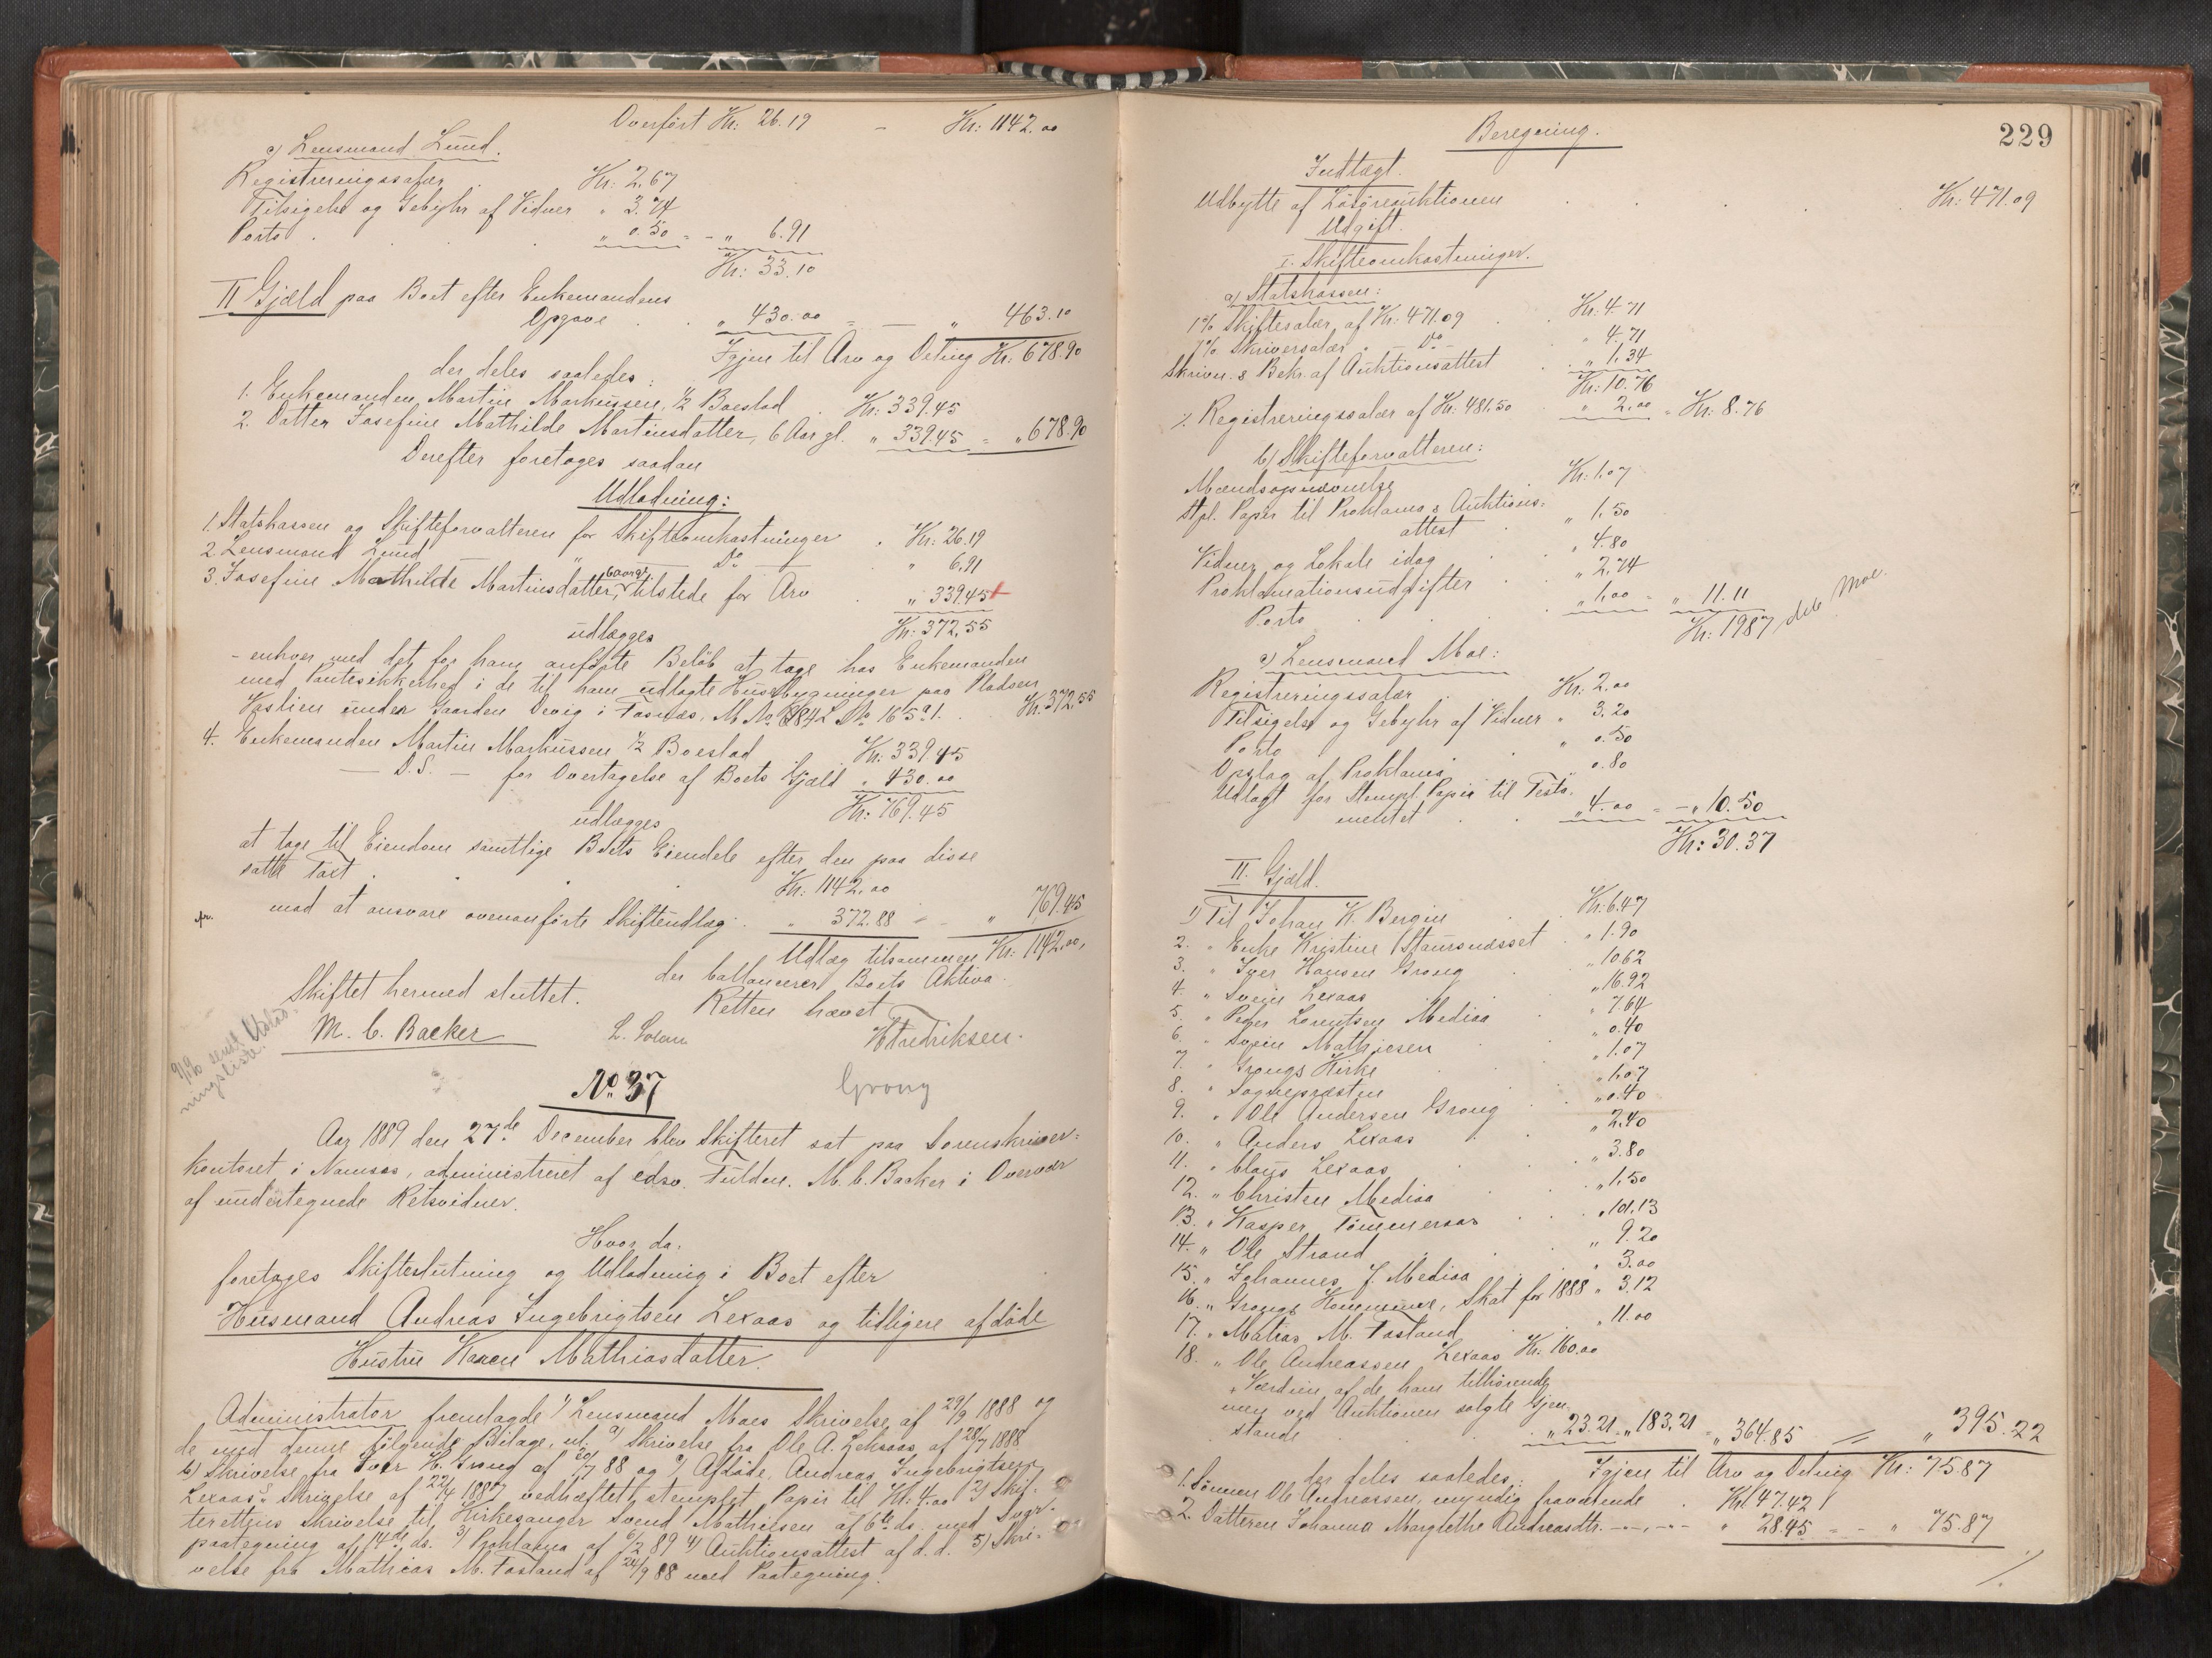 Overført Kr: 26.19 - Kr: 1142.00
c) Lensmand Lund.
Registreringssalær . Kr: 2.67
Tilsigelse og Gebyhr af Vidner " 3.74
Porto . . . " 0.50 = - " 6.91
Kr: 33.10
II Gjæld paa Boet efter Enkemandens
Opgave . . " 430.00 = - " 463.10
Igjen til Arv og Deling Kr: 678.90
der deles saaledes:
1. Enkemanden, Martin Markussen, ½ Boeslod . Kr: 339.45
2. Datter Josefine Mathilde Martinsdatter, 6 Aar gl. " 339.45 = " 678.90
Derefter foretoges saadan
Udlodning:
1. Statskassen og Skifteforvalteren for Skifteomkostninger . Kr: 26.19
2. Lensmand Lund - " - Do - " 6.91
3. Josefine Mathilde Martinsdatter, 6 Aar gl. tilstede for Arv . " 339.45
udlægges Kr: 372,55
- enhver med det for ham anførte Beløb at tage hos Enkemanden
med Pantesikkerhed i de til ham udlagte Husebygninger paa Pladsen
Vaslien under Gaarden Devig i Fosnæs, M No 84 L No 165a1. . Kr. 372,55
4. Enkemanden Martin Markussen ½ Boeslod . Kr: 339.45
— D.S. — for Overtagelse af Boets Gjæld " 430.00
udlægges Kr: 769.45
at tage til Eiendom samtlige Boets Eiendele efter den paa disse
satte Taxt . . . Kr: 1142.00
mod at ansvare ovenanførte Skifteudlæg . " 372.88 = - " 769.45
Udlæg tilsammen Kr: 1142.00,
der ballancerer Boets Aktiva.
Skiftet hermed sluttet. Retten hævet
M. C. Backer HFredriksen.
No 37 Grong
Aar 1889 den 27de December blev Skifteret sat paa Sorenskriver-
kontoret i Namsos, administreret af edsv. Fuldm. M. C. Backer i Overvær
af undertegnede Retsvidner.
Hvor da:
foretoges Skifteslutning og Udlodning i Boet efter
Husmand Andreas Ingebrigtsen Lexaas og tidligere afdøde
Hustru Karen Mathiasdatter.
Administrator fremlagde 1) Lensmand Moes Skrivelse af 29/9 1888 og
de med denne følgende Bilage, nl. a) Skrivelse fra Ole A. Leksaas af 28/7 1888
b) Skrivelse fra Iver H. Grong af 20/7 88 og c) Afdøde, Andreas Ingebrigtsen
Lexaas's Skrivelse af 22/4 1887 vedhæftet stemplet Papir til Kr: 4.00 2) Skif-
terettens Skrivelse til Kirkesanger Svend Mathisen af 6te ds. med Svar-
paategning af 14de ds. 3) Proklama af 6/2 89 4) Auktionsattest af d.d. 5) Skri-
velse fra Mathias M. Fosland af 24/9 88 med Paategning.
229
Beregning.
Indtægt.
Udbytte af Løsøreauktionen . . . . Kr: 471.09
Udgift.
I. Skifteomkostninger.
a) Statskassen:
1% Skiftesalær af Kr: 471.09 . Kr: 4.71
1% Skriversalær " - Do - " 4.71
Skriver. & Bekr. af Auktionsattest . " 1.34
Kr: 10.76
⁒ Registreringssalær af Kr: 481,50 " 2.00 = Kr: 8.76
b) Skifteforvalteren:
Mændsopnævnelse . Kr: 1.07
Stpl. Papir til Proklama & Auktions-
attest " 1.50
Vidner og Lokale idag . " 4.80
Proklamationsudgifter . . " 2.74
Porto . . . " 1.00 = " 11.11
Kr: 19.87
c) Lensmand Moe:
Registreringssalær . Kr: 2.00
Tilsigelse og Gebyhr af Vidner " 3.20
Porto . . " 0.50
Opslag af Proklama . 0.80
Udlagt for Stempl. Papir til Testa-
mentet . . " 4.00 = - " 10.50
Kr: 30.37
II. Gjæld.
1) Til Johan K. Bergin . Kr: 6.47
2. " Enke Kristine Staursnæsset . " 1.90
3. " Iver Hansen Grong . " 10.62
4. " Svein Lexaas . " 16.92
5. " Peder Lorntsen Mediaa . " 7.64
6. " Svein Mathiesen . " 0.40
7. " Grongs Kirke . " 1.07
8. " Sognepræsten . " 1.07
9. " Ole Andersen Grong . " 0.40
10. " Anders Lexaas . " 2.40
11. " Claus Lexaas . " 3.80
12. " Christen Mediaa . " 1.50
13. " Kasper Tømmeraas . " 101.13
14. " Ole Strand . " 9.20
15. " Johannes J. Mediaa . " 3.00
16. " Grongs Kommune, Skat for 1888 " 3.12
17. " Matias M. Fosland . . " 11.00
18. " Ole Andreassen Lexaas Kr: 160.00
" Værdien af de ham tilhørende
men ved Auktionen solgte Gjen-
stande . " 23.21 = " 183.21 = " 364.85 = " 395.22
Igjen til Arv og Deling Kr: 75.87
der deles saaledes:
1. Sønnen Ole Andreassen, myndig fraværende . Kr. 47.42
2. Datteren Johanna Margrethe Andreasdtr. - " - " 28.45 = - " 75.87